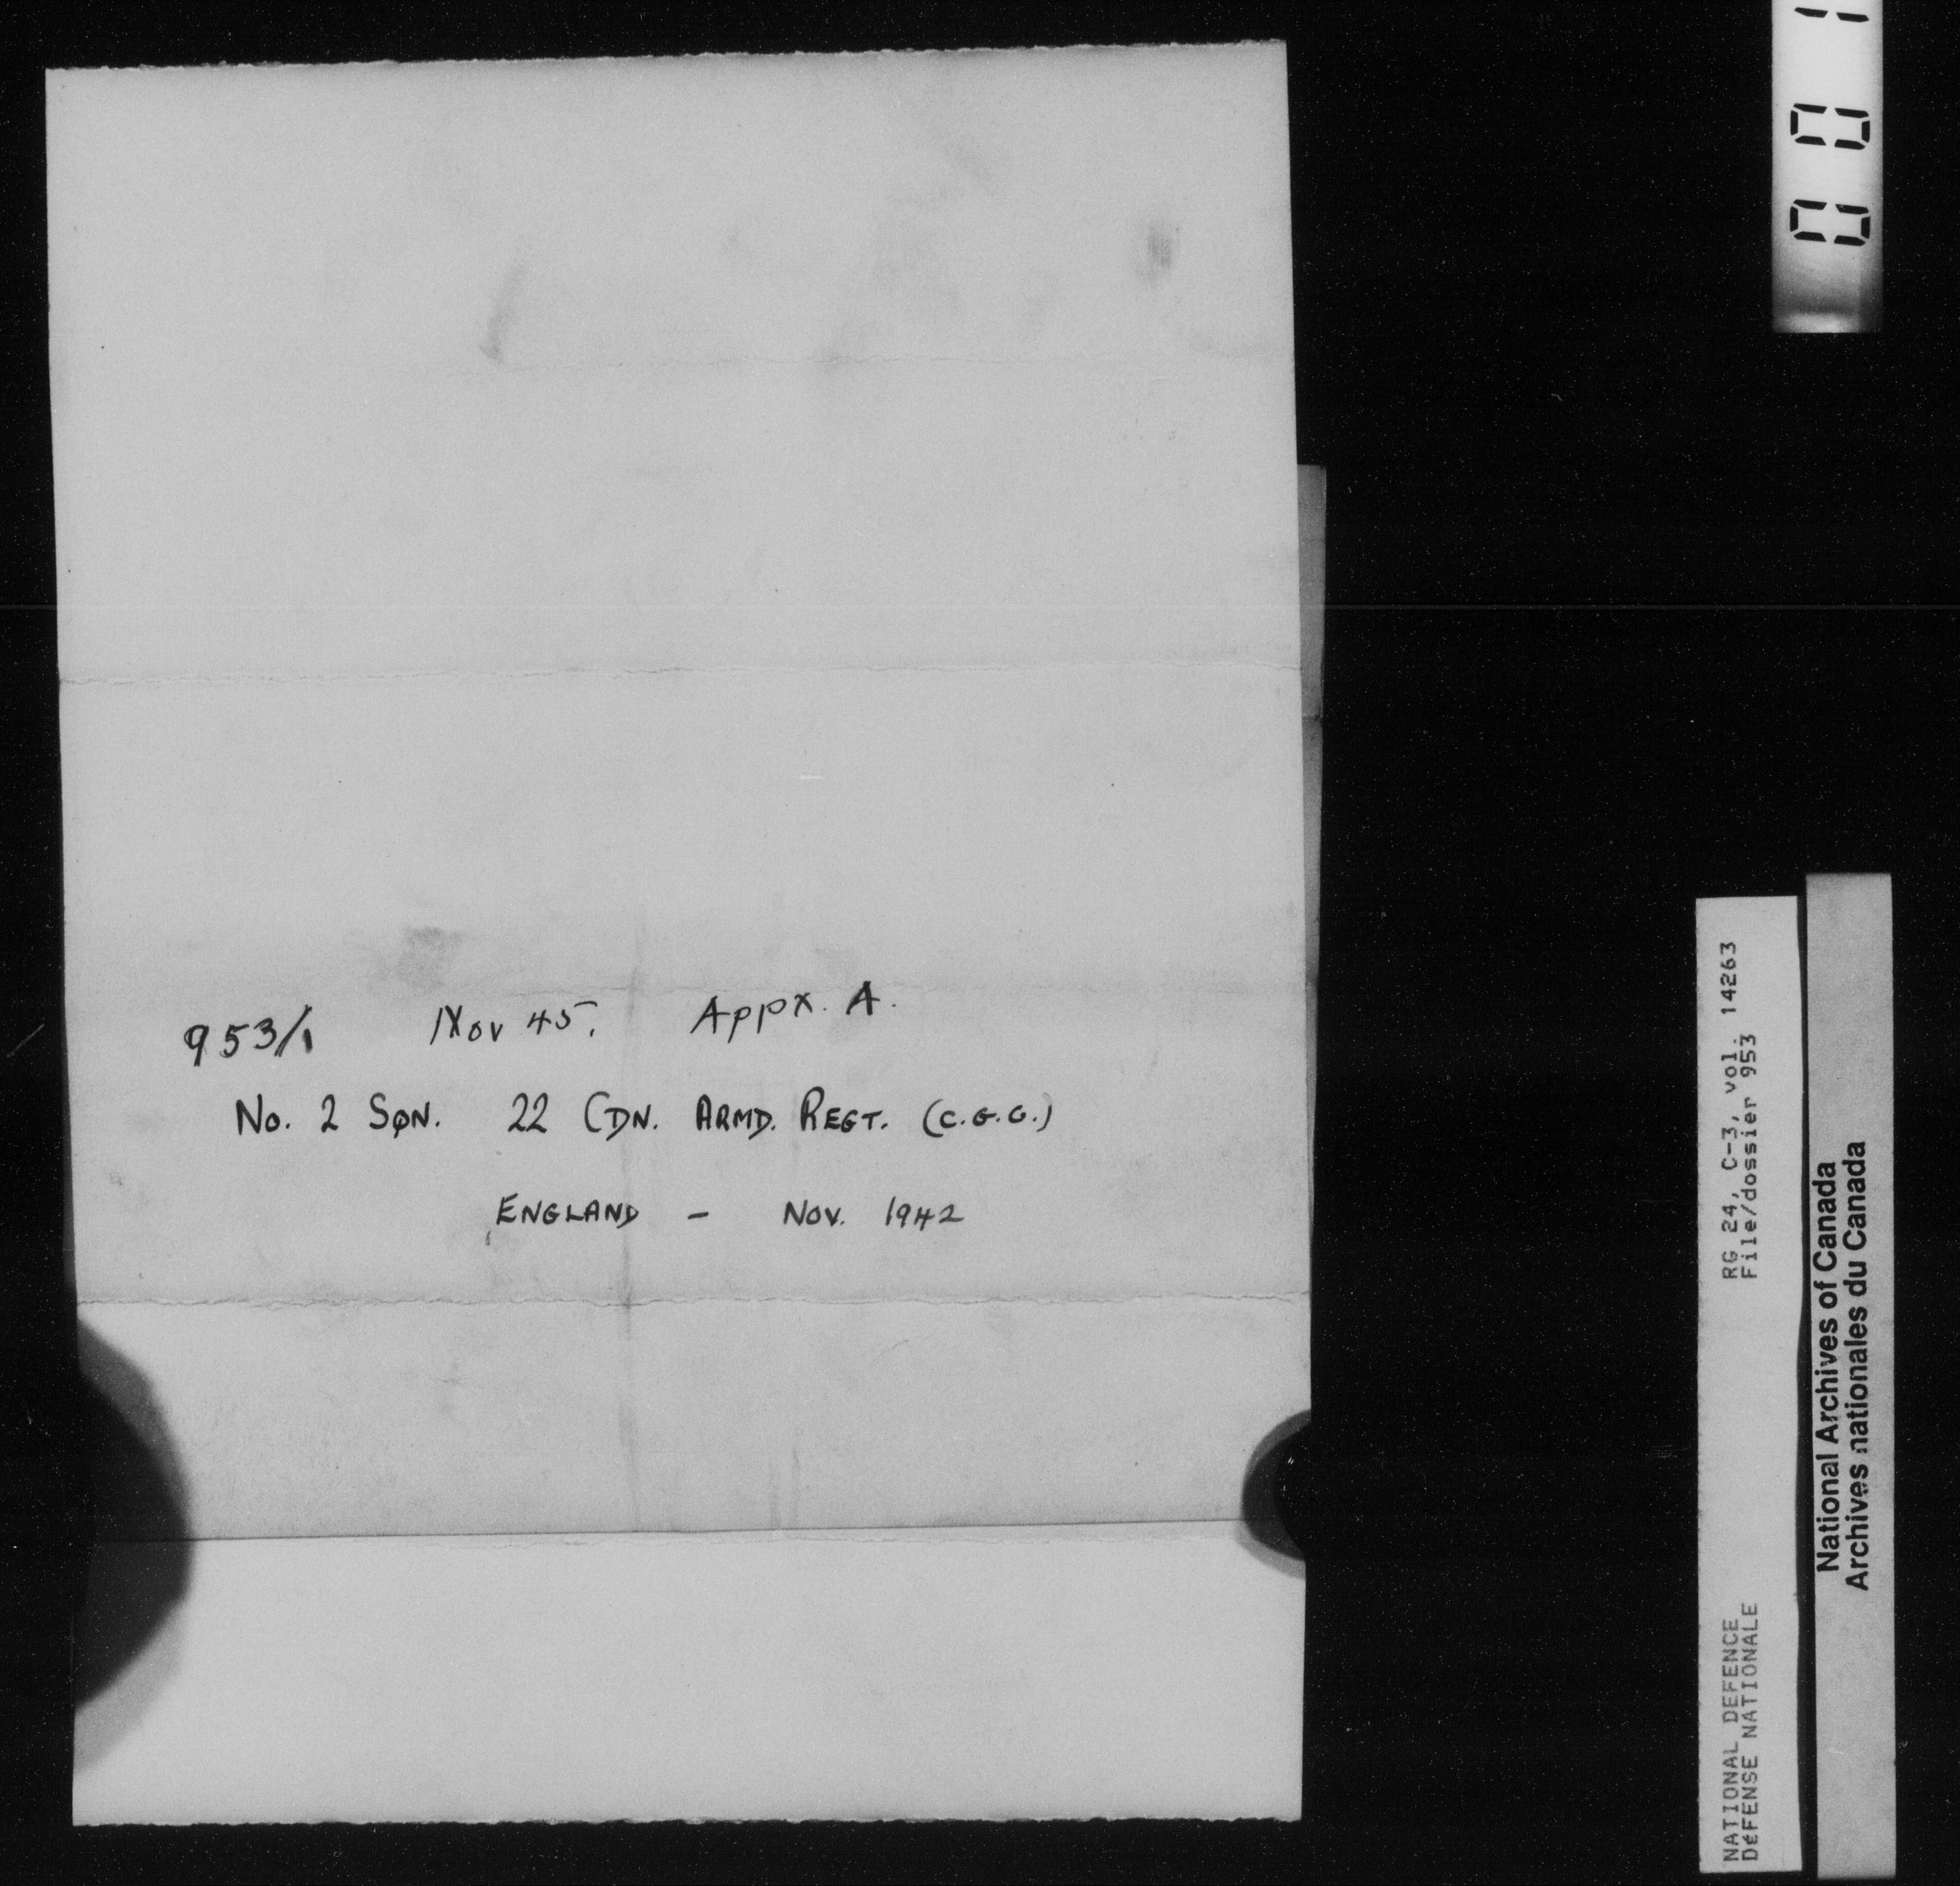 953/1 Nov 45. Appx. A.
No. 2 Sqn. 22 CDN. ARMD. REGT. (C.G.G.)
ENGLAND - NOV. 1942
001
RG 24, C-3, vol. 14263
File/dossier 953
NATIONAL DEFENCE
DéFENSE NATIONALE
National Archives of Canada
Archives nationales du Canada